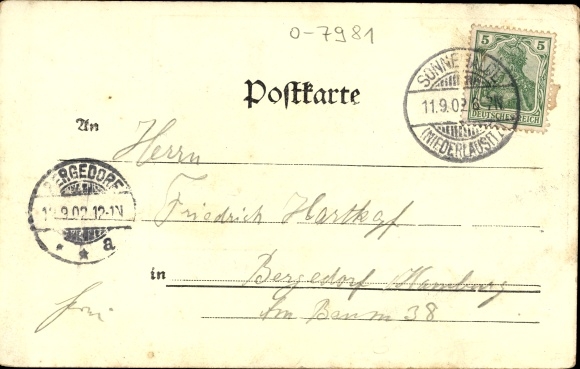 0-7981
5 5
DEUTSCHES REICH
SONNEWALDE
11.9.02 6-7N
(NIEDERLAUSITZ)
Postkarte
An
Herrn
BERGEDORF
12.9.02.12-1N
* * a
Friedrich Hartkopf
in
Bergedorf Hamburg
Am Baum 38